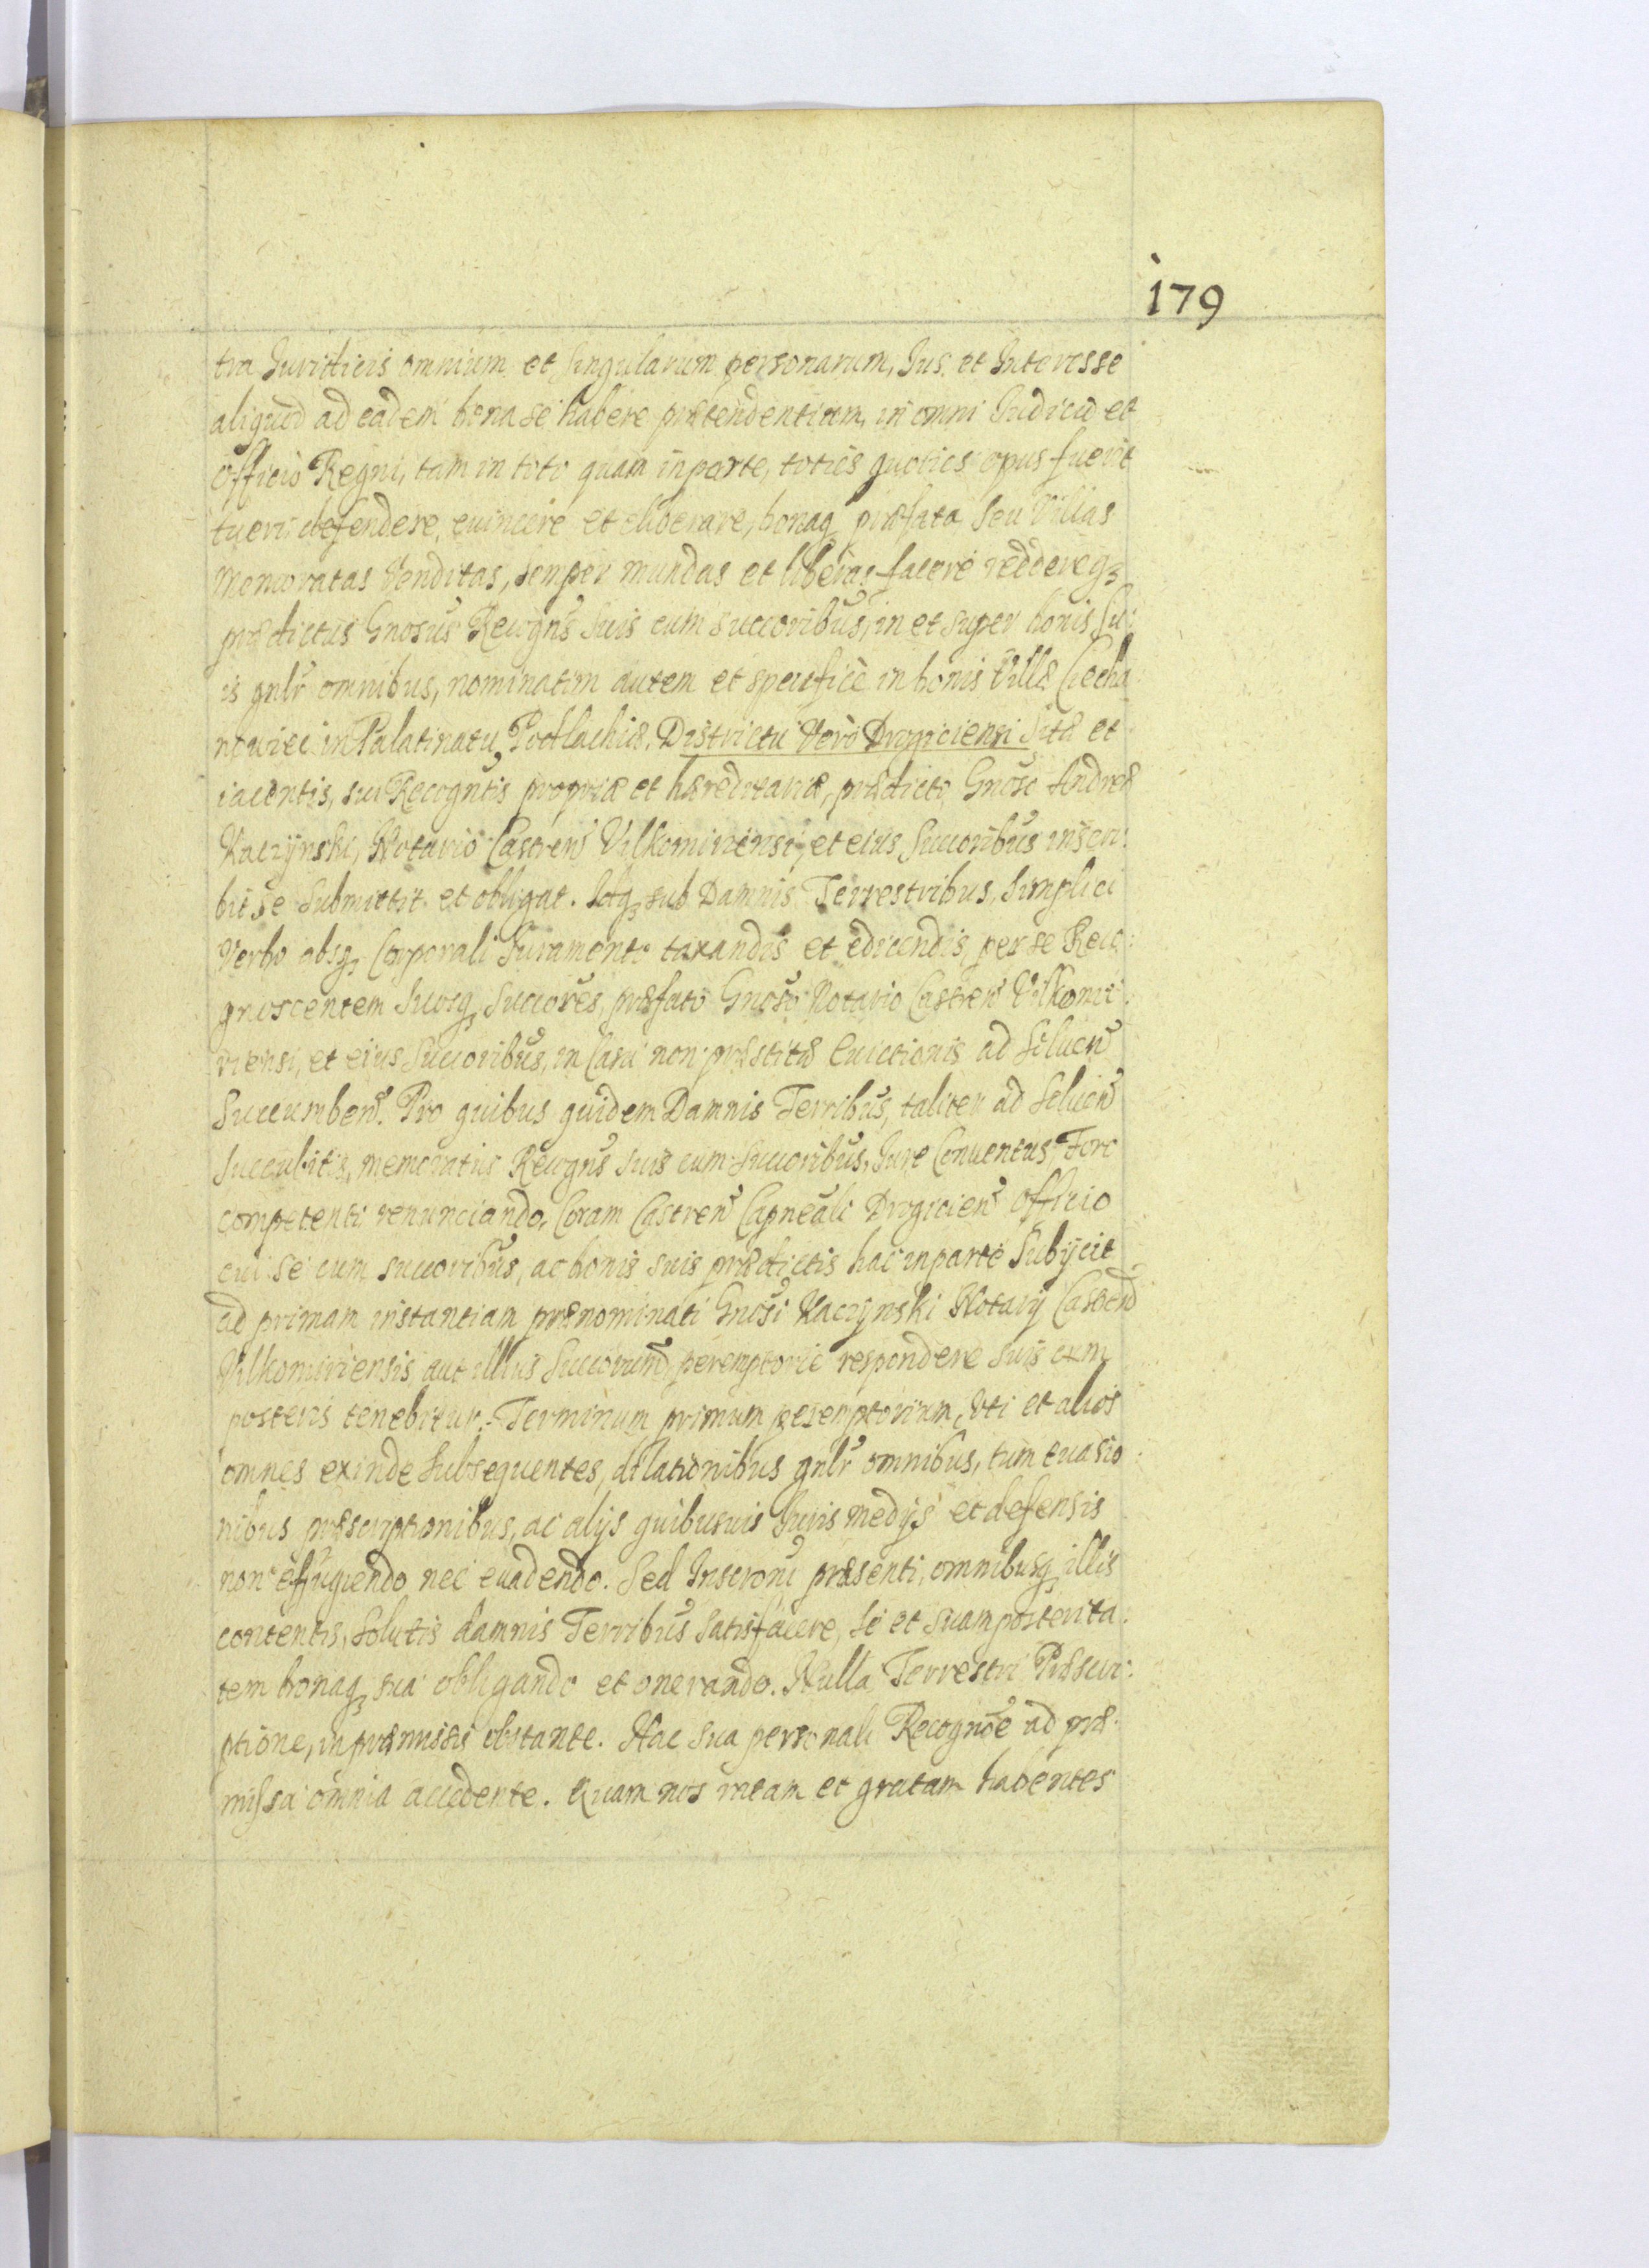 179
tra Iuridicis omnium et singularum personarum, Ius et Interesse
aliquod ad eadem bona se habere prætendentium, in omni Iudicio et
Officio Regni, tam in toto quam in parte, toties quoties opus fuerit
tueri defendere, euincere et eliberare, bonaq3 præfata seu Villas
memoratas Venditas, semper mundas et liberas facere reddereq3
prædictus Gnosus Recogns suis cum succoribus, in et super bonis su:
is gnlr omnibus, nominatim autem et specifice in bonis Villæ Ciecha
nowiec in Palatinatu Podlachiæ, Districtu Vero Drogiciensi sitæ et
iacentis, sui Recogntis propriæ et hæreditariæ, prædicto Gnoso Andreæ
Kaczÿnski, Notario Castren Vilkomiriensi, et eius succoribus inscri:
bit se submittit et obligat. Idq3 sub Damnis Terrestribus, simplici
Verbo absq3 Corporali Iuramento taxandis et edicendis, per se Reco:
gnoscentem suosq3 succores, præfato Gnoso Notario Castren Vilkomi:
riensi, et eius succoribus, in Casu non præstitæ Euictionis ad soluen
succumben. Pro quibus quidem Damnis Terribus, taliter ad soluen
succubitis, memoratus Recogns suis cum succoribus, Iure Conuentus Foro
competenti renunciando, Coram Castren Capneali Drogicien Officio
cui se cum succoribus, ac bonis suis prædictis hac in parte subÿcit
ad primam instantiam prænominati Gnosi Kaczÿnski Notarÿ Castren
Vilkomiriensis aut illius succorum, peremptorie respondere suis cum
posteris tenebitur. Terminum primum peremptorium, Vti et alios
omnes exinde subsequentes, dilationibus gnlr omnibus, tum euasio:
nibus præscriptionibus, ac alÿs quibusuis Iuris medÿs et defensis
non effugiendo nec euadendo. Sed Inscroni præsenti, omnibusq3 illis
contentis, solutis damnis Terribus satisfacere, se et suam posterita:
tem bonaq3 sua obligando et onerando. Nulla Terrestri Præscri:
ptione, in præmissis obstante. Hac sua personali Recognoe ad præ:
missa omnia accedente. Quam nos ratam et gratam habentes